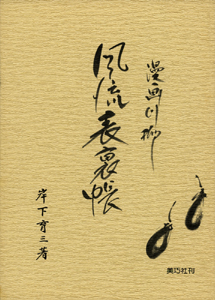 漫画川柳
風流表裏帳
岸下育三著
美巧社刊